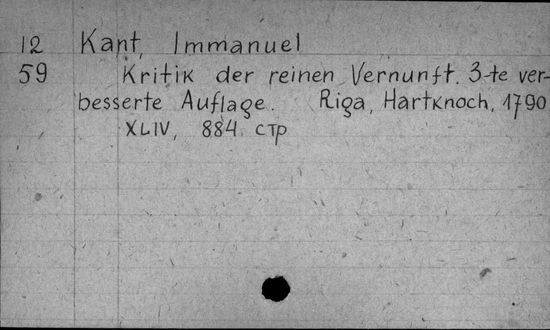 12 Kant, Immanuel
59 Kritik der reinen Vernunft. 3-te ver-
besserte Auflage. Riga, Hartknoch, 1790
XLIV, 884 стр